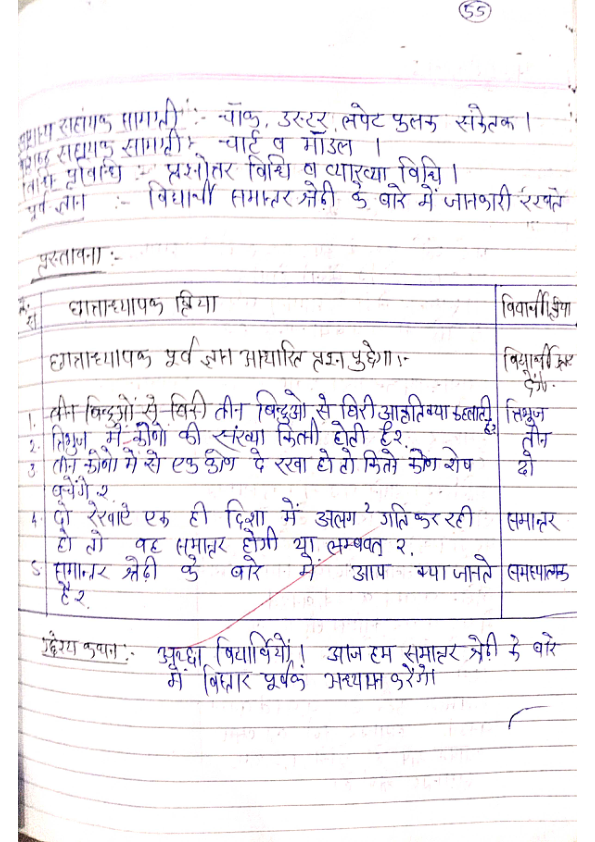 55
सहायक सामग्री :- चॉक, डस्टर, लपेट फलक संकेतक ।
सहायक सामग्री :- चार्ट व मॉडल ।
प्रविधि :- प्रश्नोतर विधि व व्याख्या विधि ।
पूर्व ज्ञान :- विद्यार्थी समान्तर श्रेढ़ी के बारे में जानकारी रखते
प्रस्तावना :-
क्र. छात्राध्यापक क्रिया विद्यार्थी क्रिया
सं
छात्राध्यापक पूर्व ज्ञान आधारित प्रश्न पुछेगा :- विद्यार्थी उत्तर
देंगे.
1. तीन बिन्दुओं से घिरी तीन बिन्दुओ से घिरी आकृति क्या कहलाती है? त्रिभुज
2. त्रिभुज में कोणो की संख्या कितनी होती है? तीन
3 तीन कोणो में से एक कोण दे रखा हो तो कितने कोण शेष दो
बचेंगे ?
4. दो रेखाऐं एक ही दिशा में अलग २ गति कर रही समान्तर
हो तो वह समान्तर होगी या लम्बवत ?
5 समान्तर श्रेढ़ी के बारे में आप क्या जानते समस्यात्मक
है?
उद्देश्य कथन :- अच्छा विद्यार्थियों ! आज हम समान्तर श्रेढ़ी के बारे
में विस्तार पूर्वक अध्ययन करेंगे।